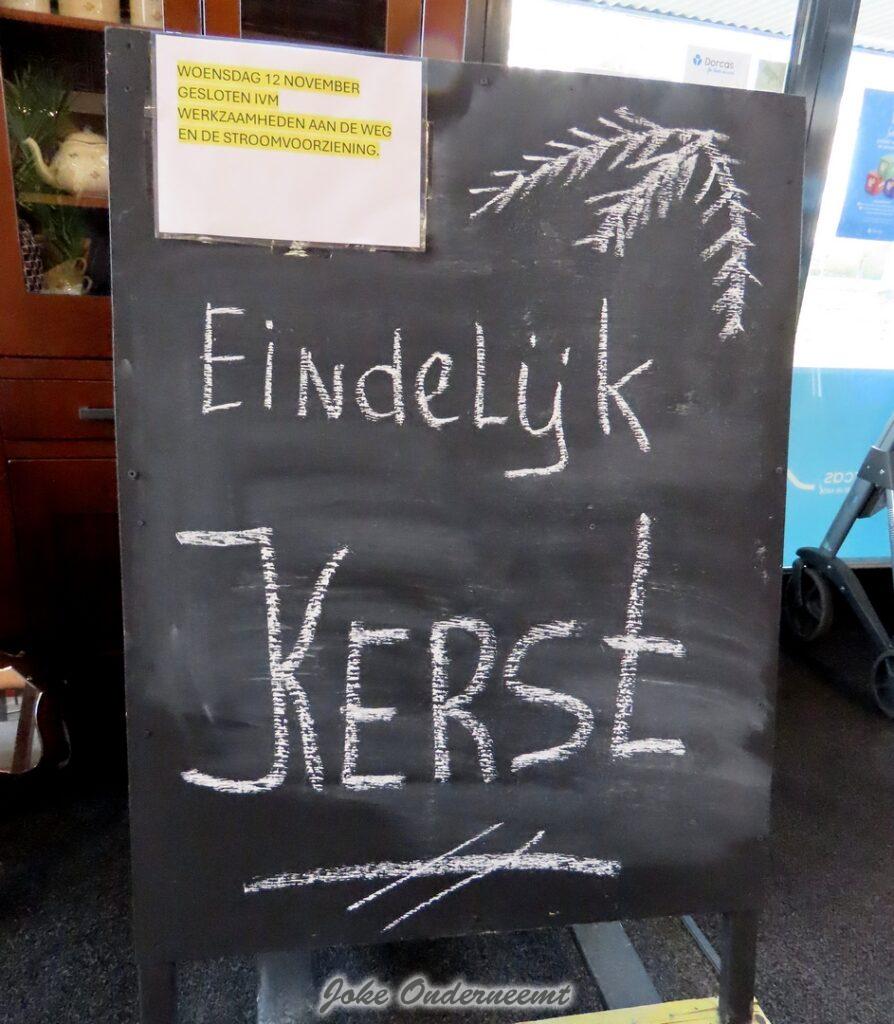 WOENSDAG 12 NOVEMBER
GESLOTEN IVM
WERKZAAMHEDEN AAN DE WEG
EN DE STROOMVOORZIENING.
Dorcas
Eindelijk
KERST
Joke Onderneemt